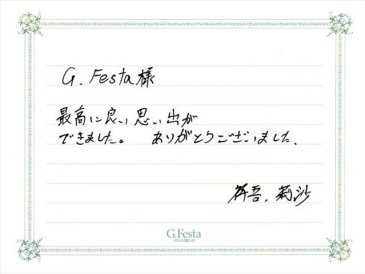 G. Festa様
最高に良い思い出が
できました。 ありがとうございました。
莉沙
G.Festa